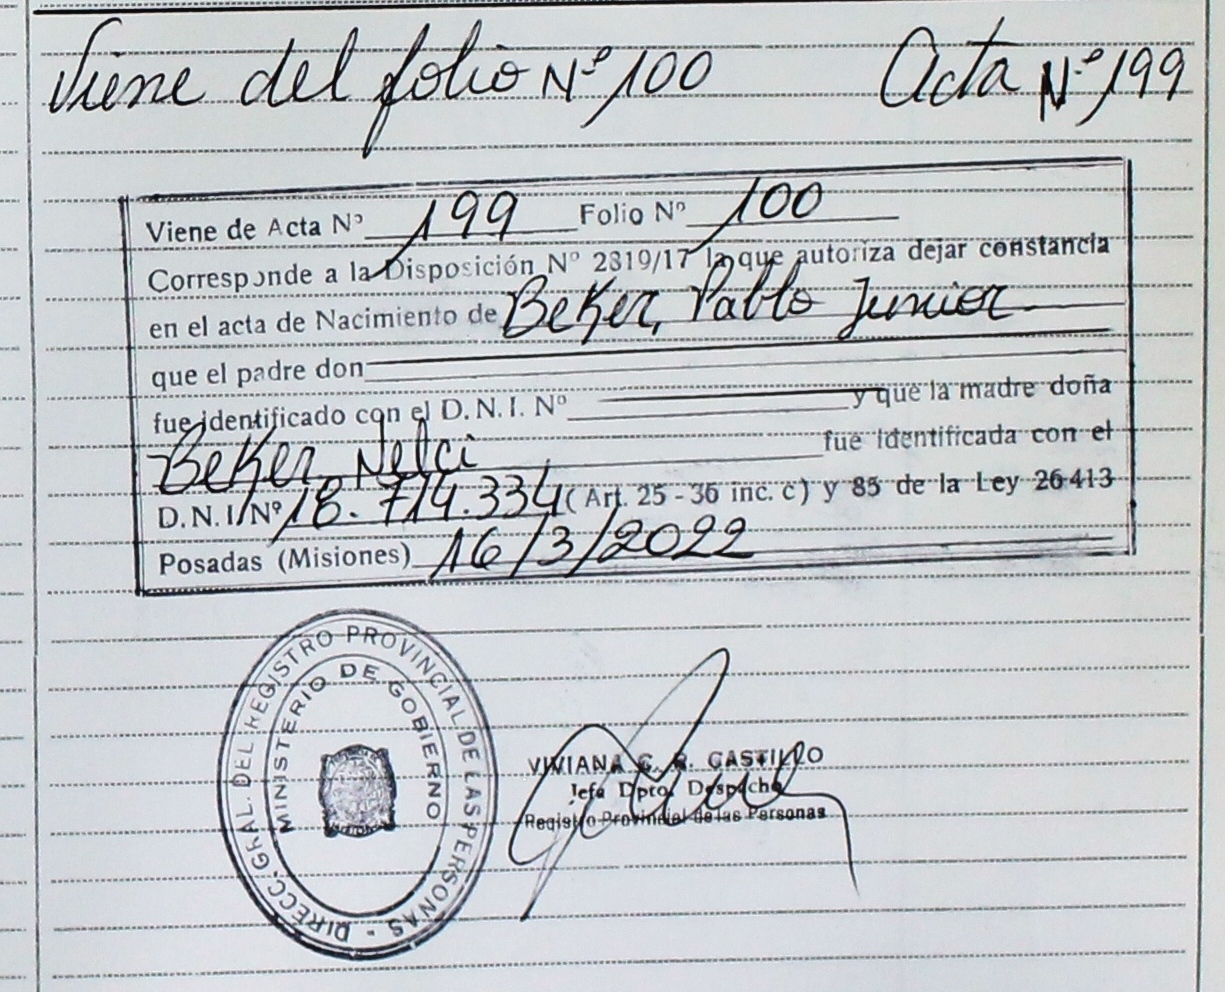 Viene del folio Nº 100 Acta Nº 199
Viene de Acta Nº 199 Folio Nº 100
Corresponde a la Disposición Nº 2819/17 la que autoriza dejar constancia
en el acta de Nacimiento de Beker, Pablo Junior
que el padre don
fue identificado con el D.N.I. Nº y que la madre doña
Beker, Nelci fue identificada con el
D.N.I. Nº 18.714.334 (Art. 25 - 36 inc. c) y 85 de la Ley 26413
Posadas (Misiones) 16/3/2022
DIRECC. GRAL. DEL REGISTRO PROVINCIAL DE LAS PERSONAS -
MINISTERIO DE GOBIERNO
VIVIANA C. R. CASTILLO
Jefa Dpto. Despacho
Registro Provincial de las Personas